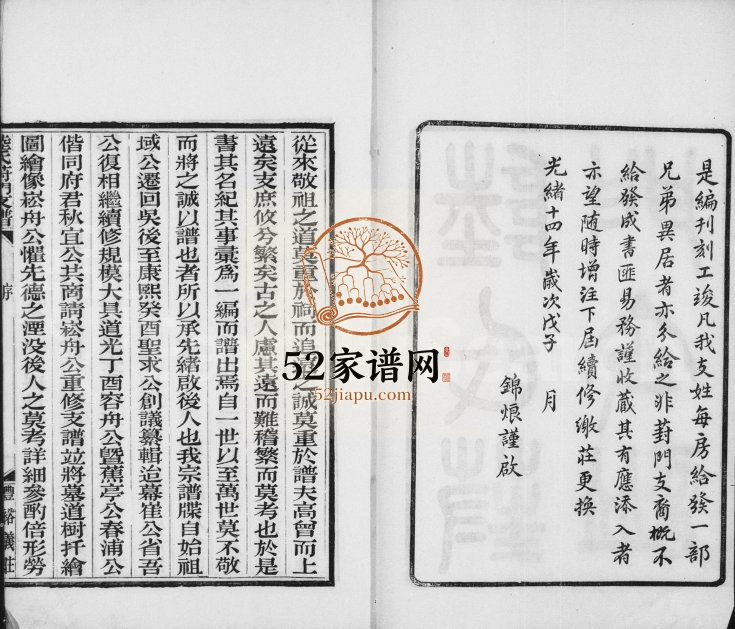 是編刊刻工竣凡我支姓每房給發一部
兄弟異居者亦分給之非葑門支裔概不
給發成書匪易務謹收藏其有應添入者
亦望随時增注下屆續修繳莊更換
光緒十四年歲次戊子　月
錦烺謹啟
從來敬祖之道莫重於祠而追遠之誠莫重於譜夫高曾而上
遠矣支庶攸分繁矣古之人慮其遠而難稽繁而莫考也於是
書其名紀其事彙爲一編而譜出焉自一世以至萬世莫不敬
而將之誠以譜也者所以承先緒啟後人也我宗譜牒自始祖
域公遷回吳後至康熙癸酉聖求公創議纂輯迨幕崔公省吾
公復相繼續修規模大具道光丁酉容舟公曁蕉亭公春浦公
偕同府君秋宜公共商請崧舟公重修支譜並將墓道樹扦繪
圖繪像崧舟公懼先德之湮没後人之莫考詳細參酌倍形勞
氏葑門支譜
序
豐裕義莊
52家谱网
52jiapu.com